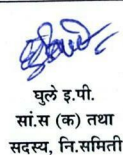 घुले इ.पी.
सां.स (क) तथा
सदस्य, नि.समिती